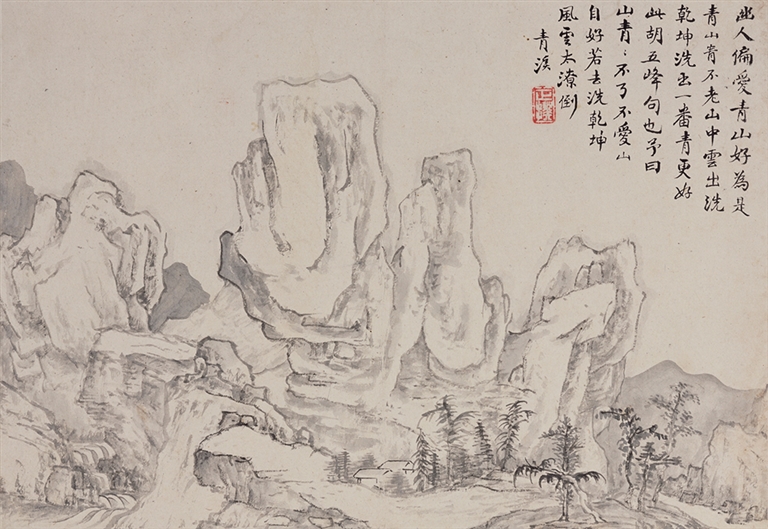 幽人偏愛青山好為是
青山青不老山中雲出洗
乾坤洗出一番青更好
此胡五峰句也予曰
山青、不了不愛山
自好若去洗乾坤
風雲太潦倒
青溪